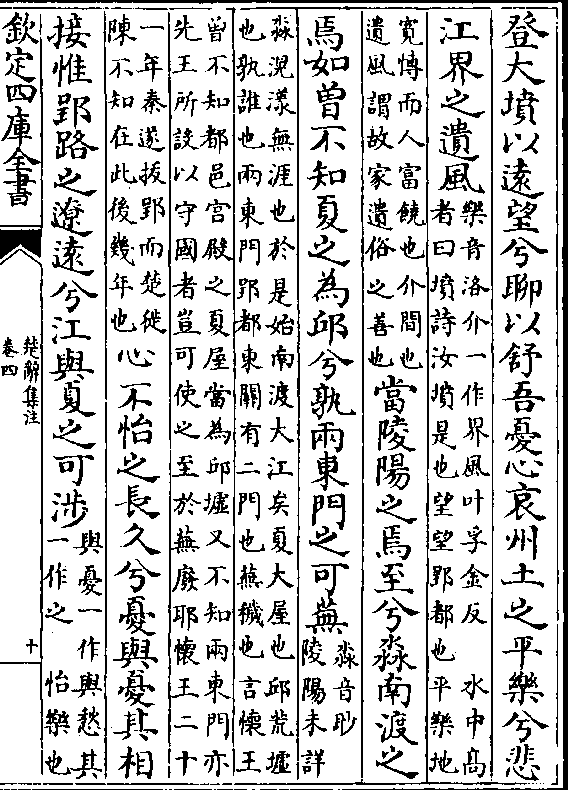 登大墳以遠望兮聊以舒吾憂心哀州土之平樂兮悲
江界之遺風
樂音洛介一作界風叶孚金反　水中高
者曰墳詩汝墳是也望望郢都也平樂地
寛愽而人富饒也介間也
遺風謂故家遺俗之善也
當陵陽之焉至兮淼南渡之
焉如曾不知夏之為邱兮孰兩東門之可蕪
淼音眇
陵陽未詳
淼滉漾無涯也於是始南渡大江矣夏大屋也邱荒墟
也孰誰也兩東門郢都東關有二門也蕪穢也言懷王
曾不知都邑宫殿之夏屋當為邱墟又不知兩東門亦
先王所設以守國者豈可使之至於蕪廢耶懷王二十
一年秦遂拔郢而楚徙
陳不知在此後幾年也
心不怡之長久兮憂與憂其相
接惟郢路之遼遠兮江與夏之可涉
與憂一作與愁其
一作之　怡樂也
欽定四庫全書
楚辭集注
卷四
十